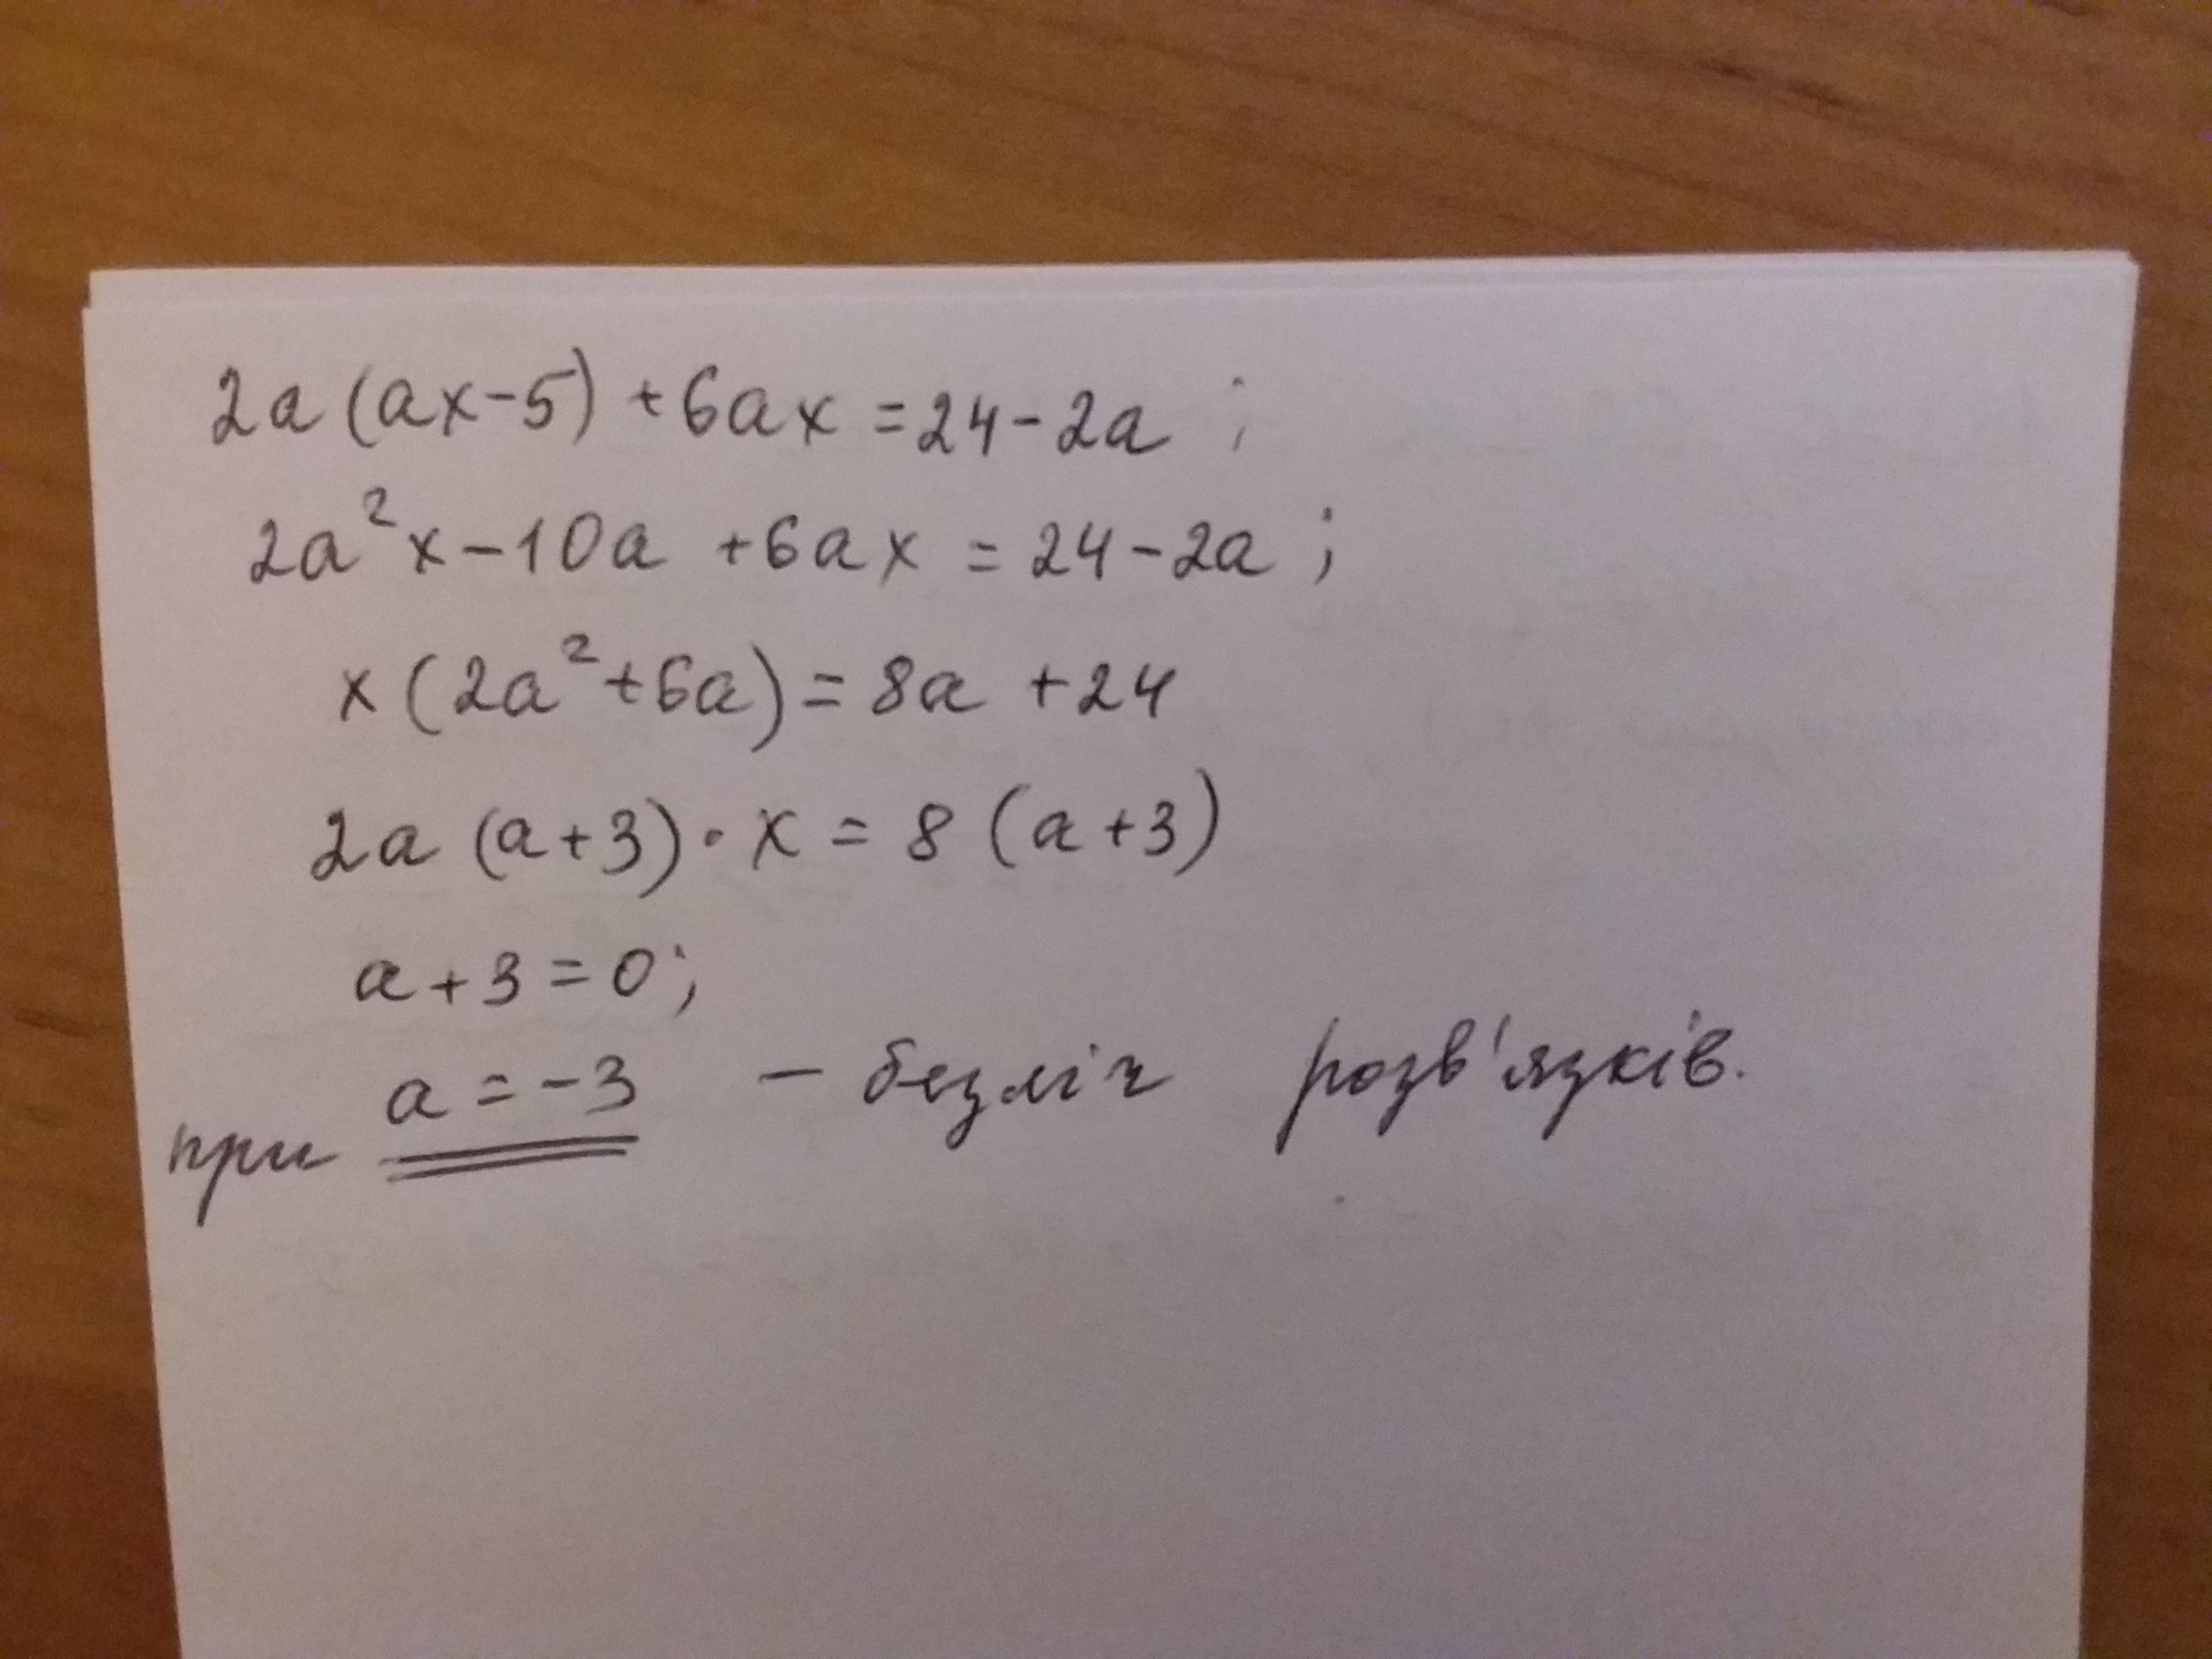 2a(ax-5)+6ax=24-2a ;
2a²x-10a+6ax=24-2a ;
x(2a²+6a)=8a+24
2a(a+3)·x=8(a+3)
a+3=0;
при a=-3 – безліч розв'язків.